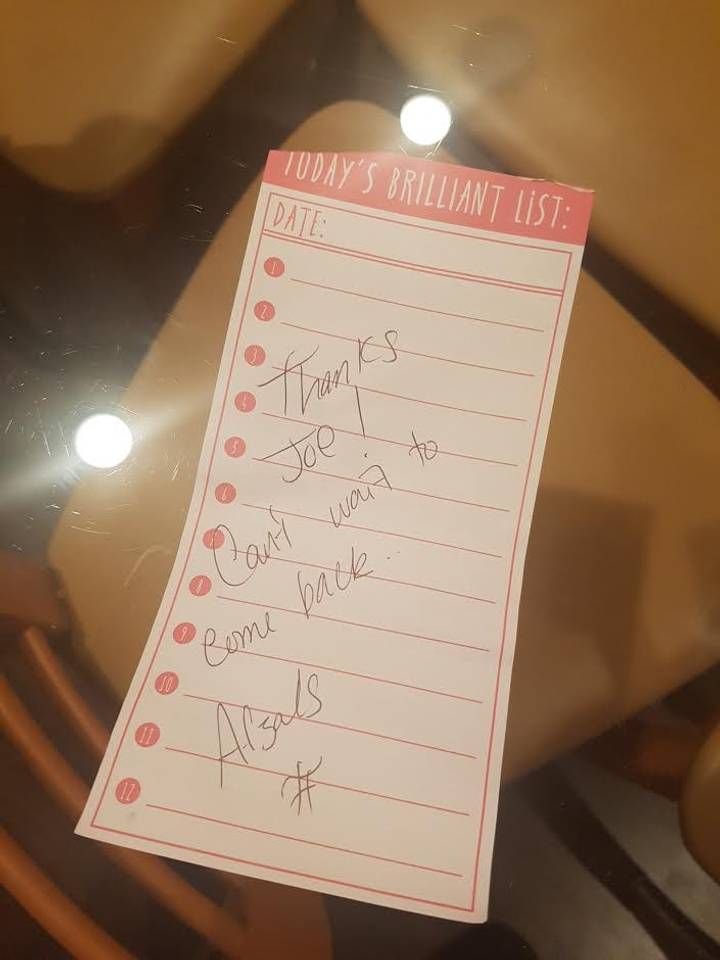 TODAY'S BRILLIANT LIST:
DATE:
1
2
3
4
5
6
8
9
10
11
12
Thanks
Joe!
Can't wait to
come back..
Afzals
#